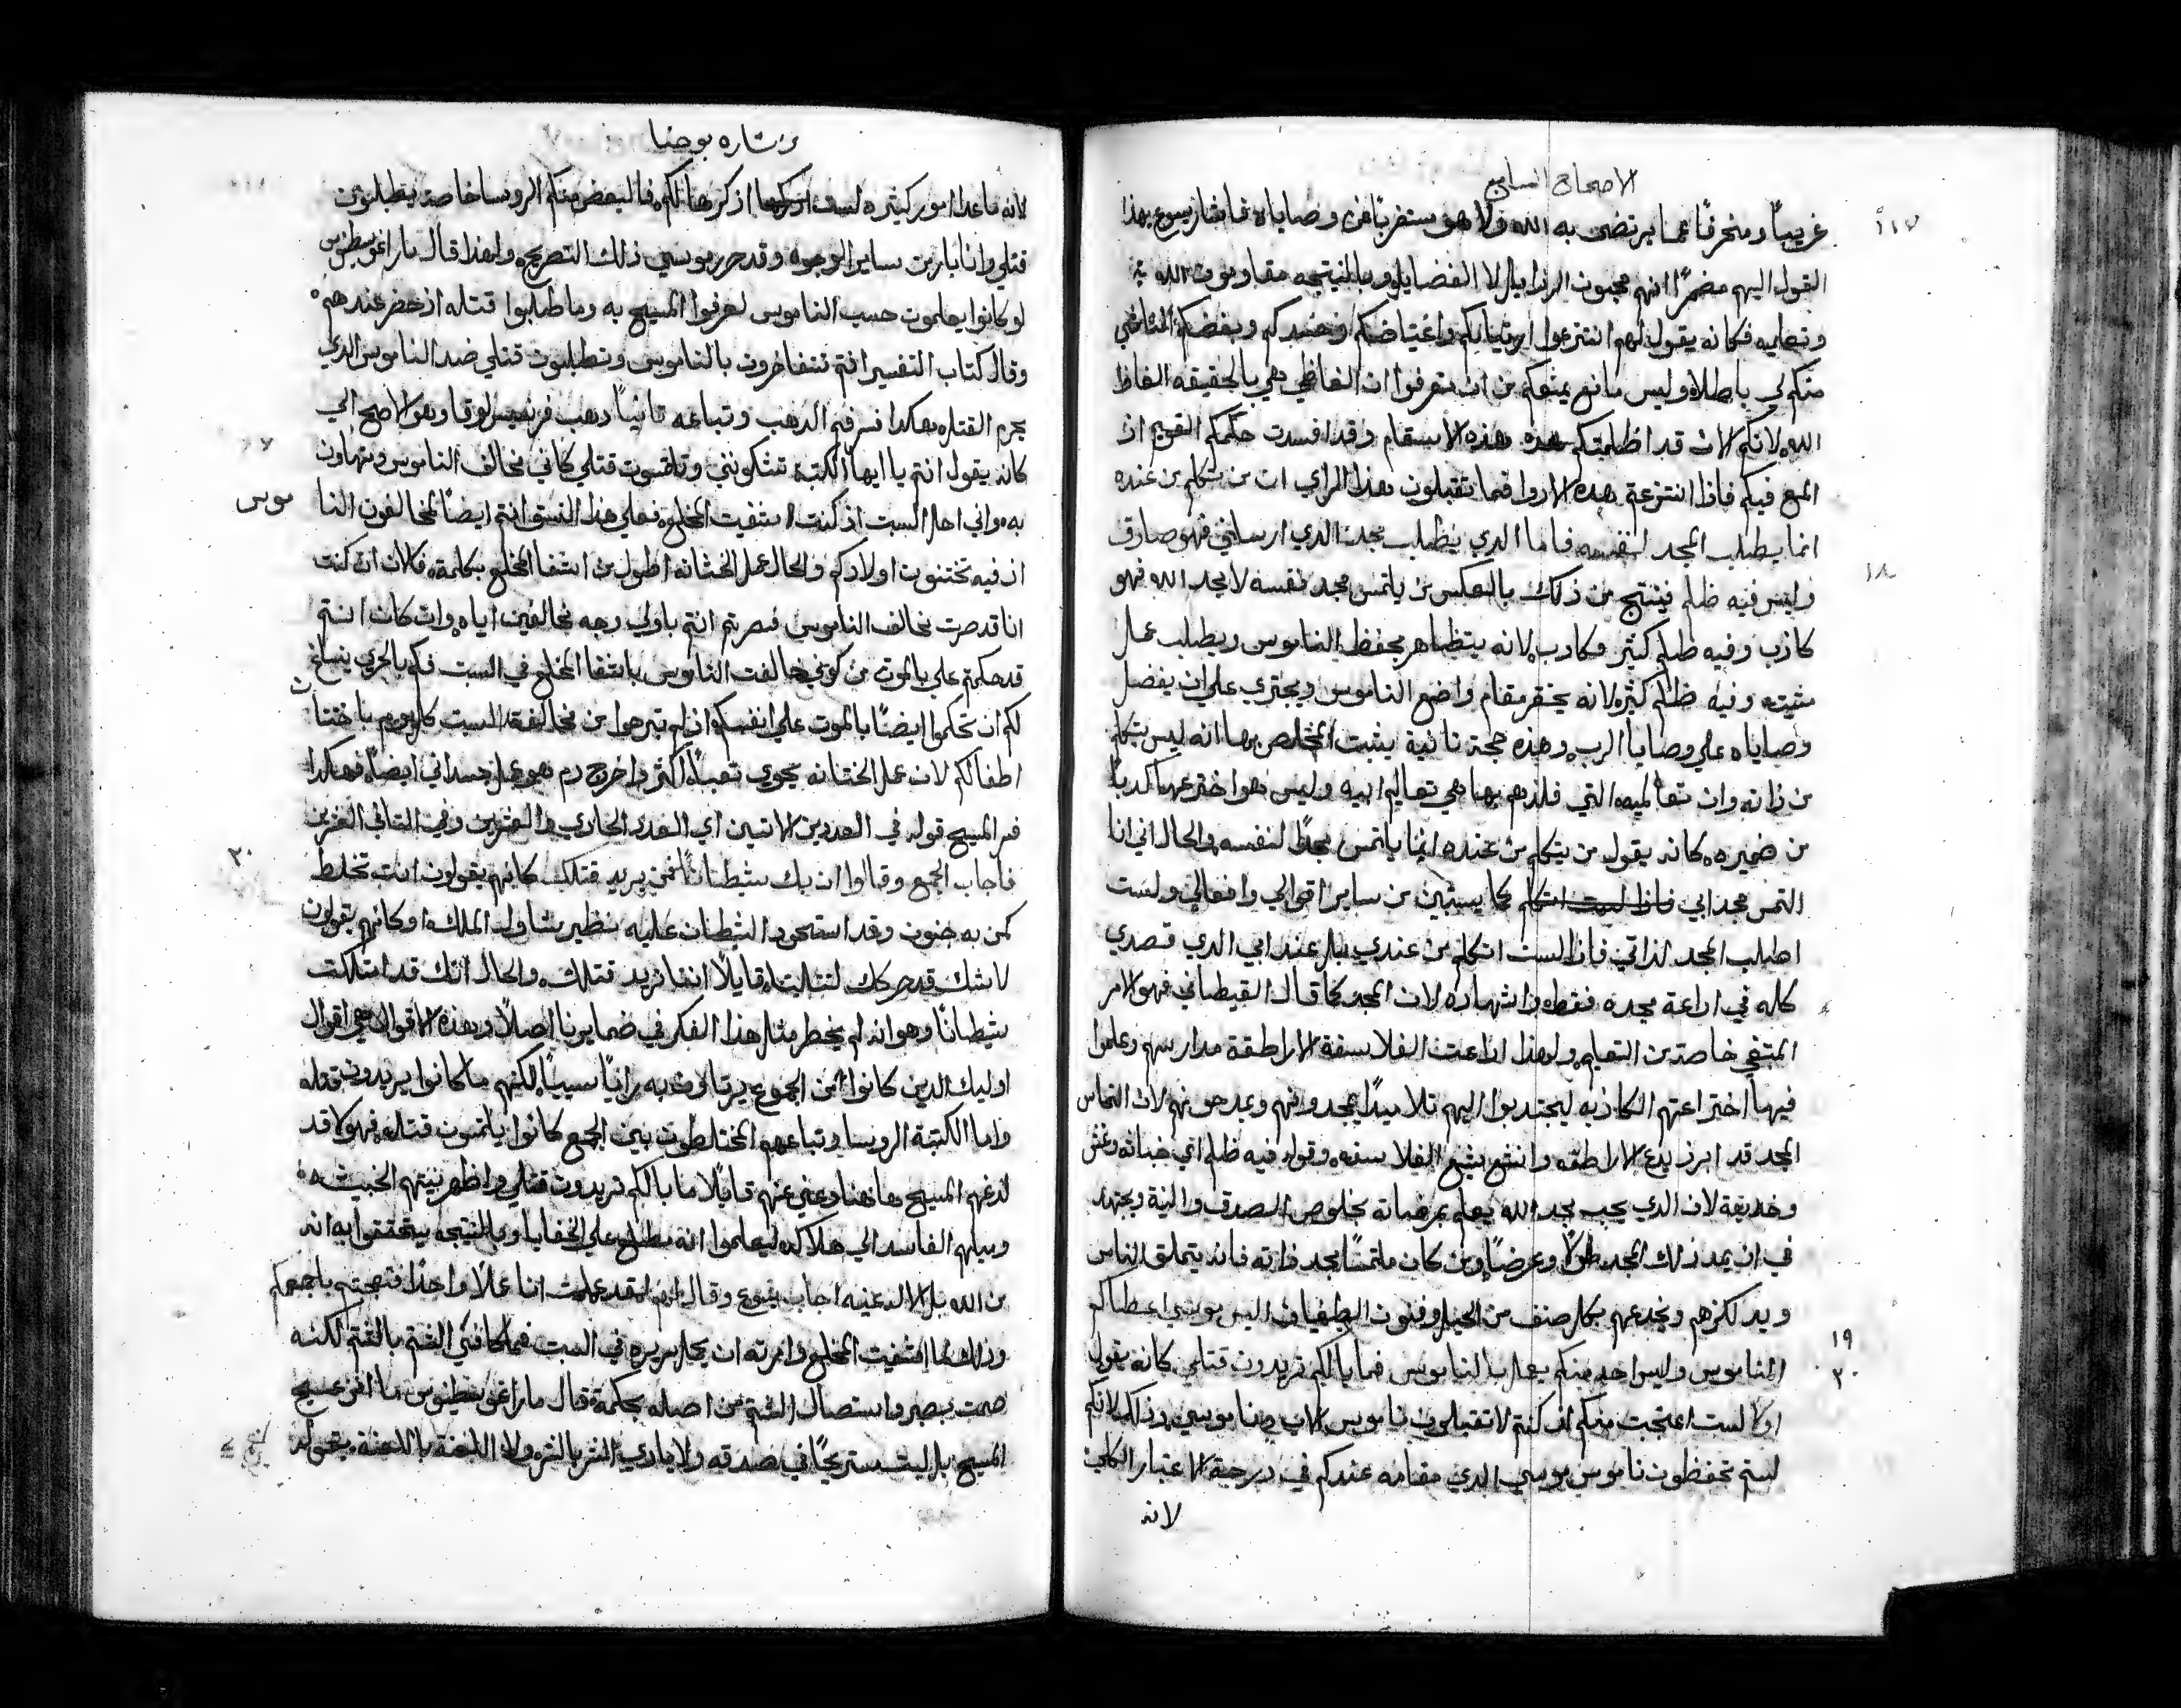 الاصحاح السابع
١١٧
غريباً ومنحرفاً عما يرتضى به الله ولا هو مستغرباً من وصاياه فاشار يسوع بهذا
القول اليهم مضمراً انهم محبون الرذايل لا الفضايل وبالنتيجه مقاومون الله
وتعليمه فكانه يقول لهم انتزعوا ارتيابكم واغتياضكم وحسدكم وبغضكم
منكم لي باطلاً وليس مانع يمنعكم من ان تعرفوا ان الفاظي هي بالحقيقه الفاظ
الله لانكم الان قد اظلمتكم هذه الاسقام وقد افسدت حكمكم القويم اذ
فيكم فاذا انتزعتم هذه الاروا فما تقبلون هذا الراي ان من يتكلم من عنده
انما يطلب المجد لنفسه فاما الذي يطلب مجد الذي ارسلني فهو صادق
١٨
وليس فيه ظلم فينتج من ذلك بالعكس من يلتمس مجد نفسه لا مجد الله فهو
كاذب وفيه ظلم كثير وكاذب لانه يتظاهر بحفظ الناموس ويطلب عمل
مشيته وفيه ظلم كثير لانه يحتقر مقام واضع الناموس ويجتري على ان يفضل
وصاياه على وصايا الرب وهذه حجة ثانية يثبت المخلص بها انه ليس يتكلم
من ذاته وان تعاليمه التي فلذهم بها هي تعاليم ابيه وليس هو اخترعها كذباً
من ضميره كانه يقول من يتكلم من عنده انما يلتمس مجداً لنفسه والحال اني انا
التمس مجد ابي كما يستبين من ساير اقوالي وافعالي ولست
اطلب المجد لذاتي فاذاً لست اتكلم من عندي بل عند ابي الذي قصدي
كله في اذاعة مجده فقط واشهاره لان المجد كما قال القيطاني فهو الامر
المبتغى خاصة من التعليم ولهذا اذاعت الفلاسفة الاراطقة مدارسهم وعلموا
فيها اختراعتهم الكاذبه ليجتذبوا اليهم تلاميذاً يمجدونهم ويمدحونهم لان التماس
المجد قد ابرز بدع الاراطقه وانشع بشع الفلاسفه وقوله فيه ظلم اي خباثه وغش
وخديعة لان الذي يحب مجد الله يعلم بمرضاته بخلوص الصدق والنية ويجتهد
في ان يمد ذلك المجد طولاً وعرضاً ومن كان ملتمساً مجد ذاته فانه يتملق الناس
ويخدعهم بكل صنف من الحيل وفنون الطغيان اليس موسى اعطاكم
١٩
٢٠
الناموس وليس احد منكم يعمل بالناموس فما بالكم تريدون قتلي كانه يقول
اولا لست اعتجب منكم ان كنتم لا تقبلون ناموس الاب وناموسي وذلك لانكم
لستم تحفظون ناموس موسي الذي مقامه عندكم في درجة الاعتبار الكلي
لانه
بشاره يوحنا
لانه ماعدا امور كثيره لست اذكرها لكم فالبعض منكم الروسا خاصة يطلبون
قتلي وانا بار من ساير الوجوه وقد حرر موسي ذلك التصريح ولهذا قال مار اغوسطينوس
لو كانوا يعلمون حسب الناموس لعرفوا المسيح به وما طلبوا قتله اذ حضر عندهم
وقال كتاب التفسير انتم تتفاخرون بالناموس وتطلبون قتلي ضد الناموس الذي
يحرم القتل هكذا فسر فم الذهب وتباعه ثانياً ذهب فرنسيس لوقا وهو الاصح الي
كانه يقول انتم يا ايها الكتبة تشكونني وتلتمسون قتلي كاني مخالف الناموس ومتهاون
به واني احل السبت اذ كنت اشفيت المخلع فعلي هذا النسق انتم ايضاً مخالفون النا
موس
اذ فيه تختنون اولادكم والحال عمل الختانه اطول من اشفا المخلع بكلمة فكان ان كنت
انا قد صرت مخالف الناموس فصرتم انتم باولي وجه مخالفين اياه وان كان انتم
قد حكمتم علي بالموت من كوني خالفت الناموس باشفا المخلع في السبت فكم بالحري ينساغ
لكم ان تحكموا ايضاً بالموت علي انفسكم اذ لم تبرحوا من مخالفة السبت كل يوم باختتان
اطفالكم لان عمل الختانه يحوي تعباً اكثر واخراج دم وهو عمل جسداني ايضاً فهكذا
فسر المسيح قوله في العددين الاتيين اي العدد الحادي والعشرين وفي التالي العشرين
٢٠
فاجاب الجمع وقالوا ان بك شيطاناً فمن يريد قتلك كانهم يقولون انت تخلط
كمن به جنون وقد استحوذ الشيطان عليه نظير شاول الملك او كانهم يقولون
لا شك قد حركك لتثلبنا قايلاً اننا نريد قتلك والحال انك قد امتلكت
شيطاناً وهو انه لم يخطر مثل هذا الفكر في ضمايرنا اصلاً وهذه الاقوال هي اقوال
اوليك الذين كانوا من الجموع يرتاون به راياً سيياً لكنهم ما كانوا يريدون قتله
واما الكتبة الروسا وتباعهم المختلطون بين الجمع كانوا يلتمسون قتله فهولا قد
لذعهم المسيح هاهنا وعني عنهم قايلاً ما بالكم تريدون قتلي واظهر نيتهم الخبيثه
وميلهم الفاسد الي هلاكه ليعلموا انه مطلع علي الخفايا وبالنتيجه يتحققوا به انه
من الله بل الاله عينه اجاب يسوع وقال لهم لقد عملت انا عملاً واحداً فتعجبتم باجمعكم
وذلك لما اشفيت المخلع وامرته ان يحمل سريره في السبت فما كافي الشتم بالشتم لكنه
صمت بصبر واستصال الشتم من اصله بحكمة قال مار اغوسطينوس ما انزعج
المسيح بل لبث مستريحاً في صدقه ولا جازي الشر بالشر ولا اللعنة باللعنة بقوله